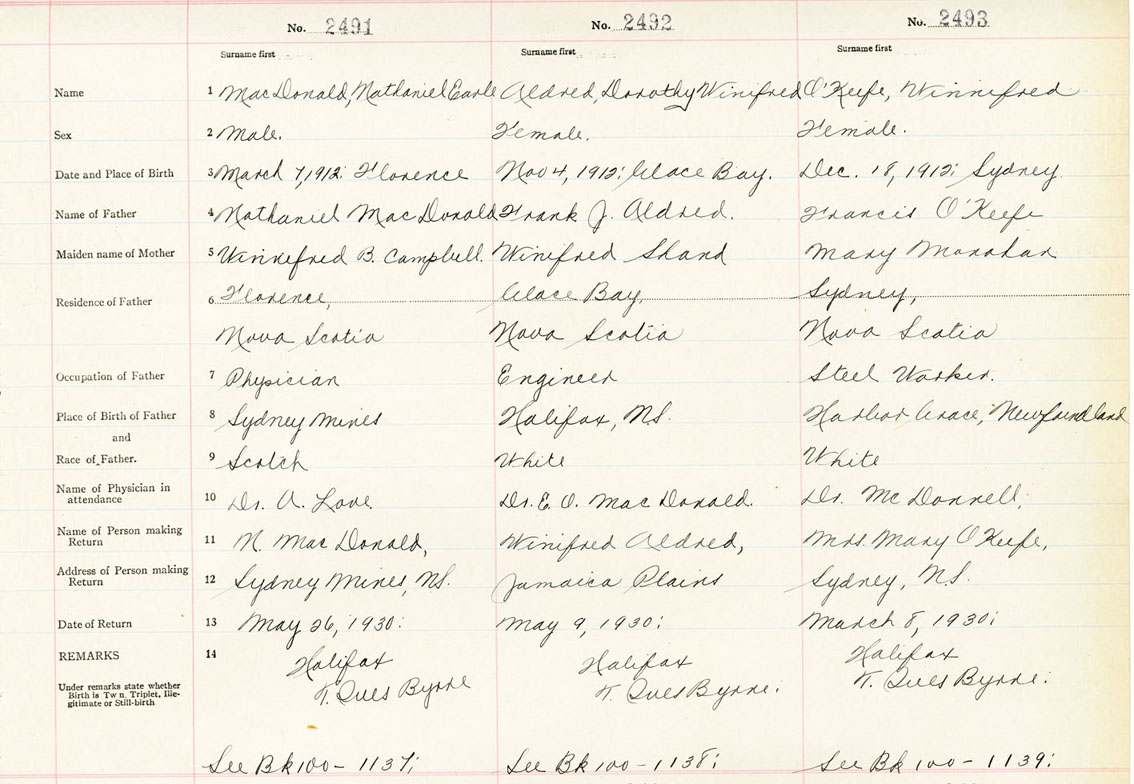 No. 2491 No. 2492 No. 2493
Surname first Surname first Surname first
Name 1 MacDonald, Nathaniel Earle Aldred, Dorothy Winifred O'Keefe, Winnifred
Sex 2 Male. Female. Female.
Date and Place of Birth 3 March 7, 1912: Florence Nov 4, 1912: Glace Bay. Dec. 18, 1912; Sydney
Name of Father 4 Nathaniel MacDonald Frank J. Aldred. Francis O'Keefe
Maiden name of Mother 5 Winnefred B. Campbell. Winifred Shand Mary Monahan
Residence of Father 6 Florence, Glace Bay, Sydney,
Nova Scotia Nova Scotia Nova Scotia
Occupation of Father 7 Physician Engineer Steel Worker.
Place of Birth of Father 8 Sydney Mines Halifax, N.S. Harbor Grace, Newfoundland
and
Race of Father. 9 Scotch White White
Name of Physician in
attendance 10 Dr. A. Love Dr. E. O. MacDonald. Dr. McDonnell,
Name of Person making
Return 11 N. MacDonald, Winifred Aldred, Mrs. Mary O'Keefe,
Address of Person making
Return 12 Sydney Mines, N.S. Jamaica Plains Sydney, N.S.
Date of Return 13 May 26, 1930: May 9, 1930: March 8, 1930:
REMARKS 14 Halifax Halifax Halifax
Under remarks state whether
Birth is Twin, Triplet, Ille-
gitimate or Still-birth
T. Byrne T. Byrne: T. Byrne:
See Bk 100 - 1137; See Bk 100 - 1138; See Bk 100 - 1139;